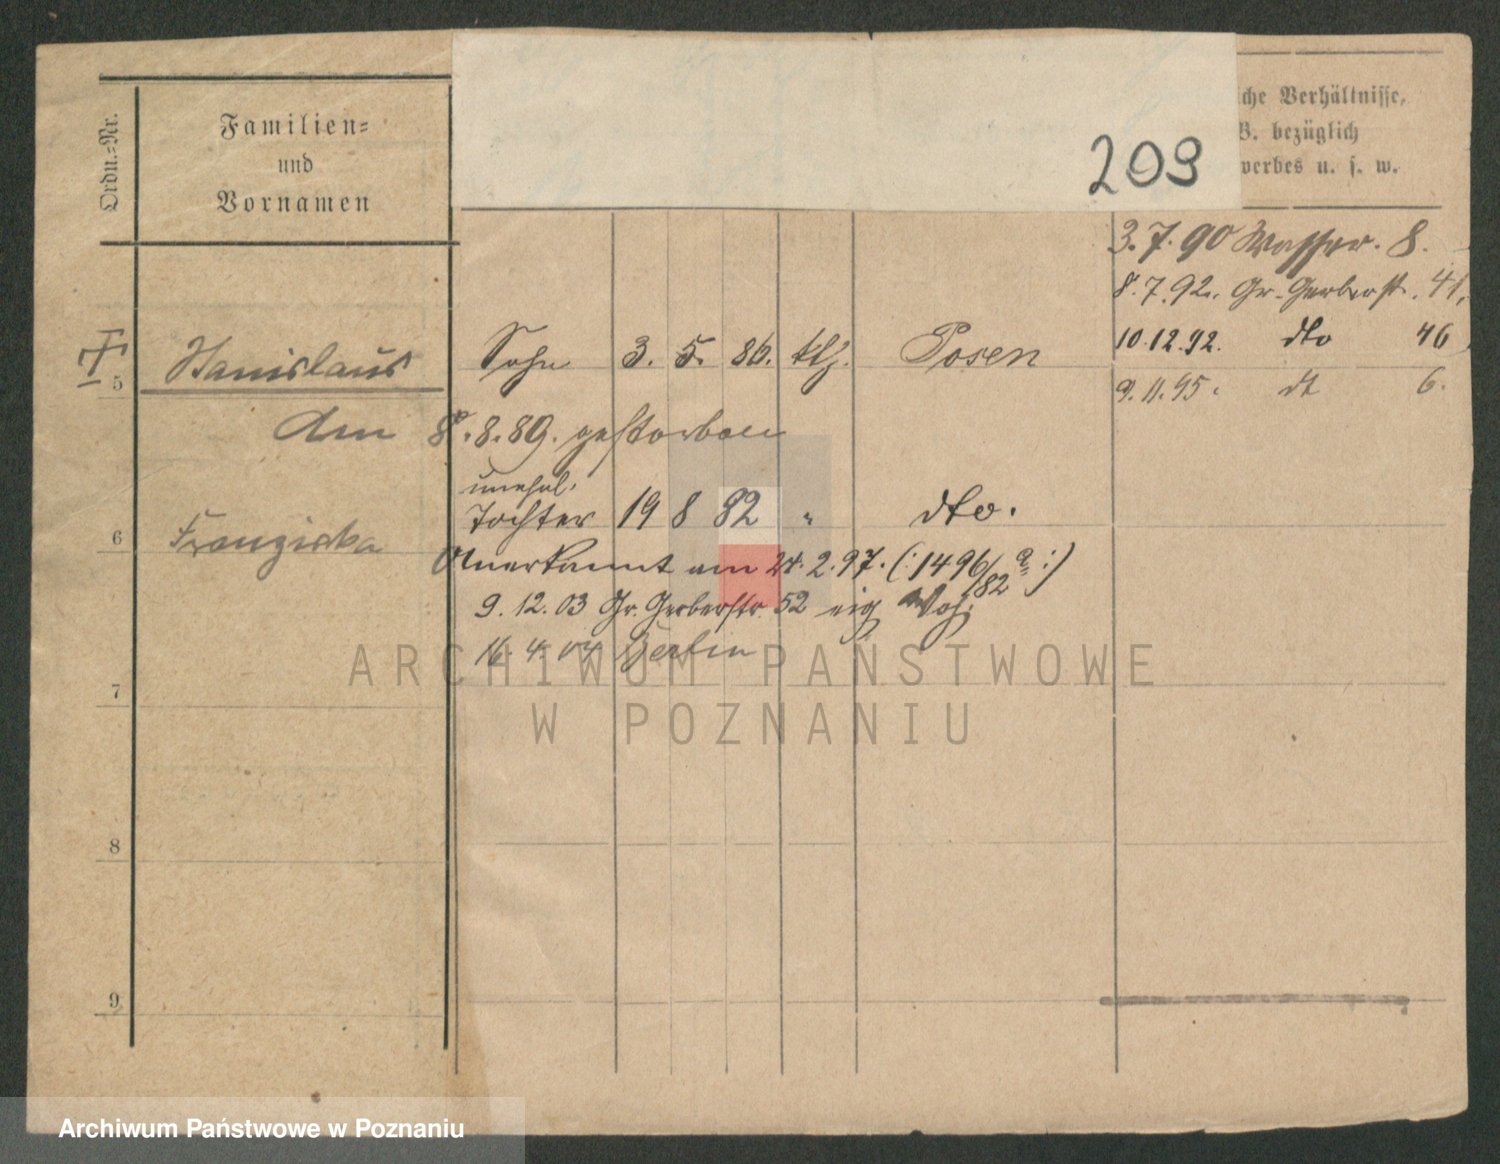 Ordn.-Nr.
Familien=
und
Vornamen
209
che Verhältnisse,
B. bezüglich
werbes u. s. w.
3. 7. 90 Wasser. 8.
8. 7. 92. Gr. Gerberstr. 41.
10. 12. 92. dto 46
9. 11. 95. dt 6.
5 Stanislaus Sohn 3. 5. 86. klg. Posen
Am 8. 8. 89. gestorben
unehel.
6 Franziska Tochter 19 8 82 " dto.
Anerkannt am 24. 2. 97. (: 1496/82 :)
9. 12. 03 Gr. Gerberstr. 52 eig
16. 4. 04 Berlin
ARCHIWUM PAŃSTWOWE
W POZNANIU
7
8
9
Archiwum Państwowe w Poznaniu